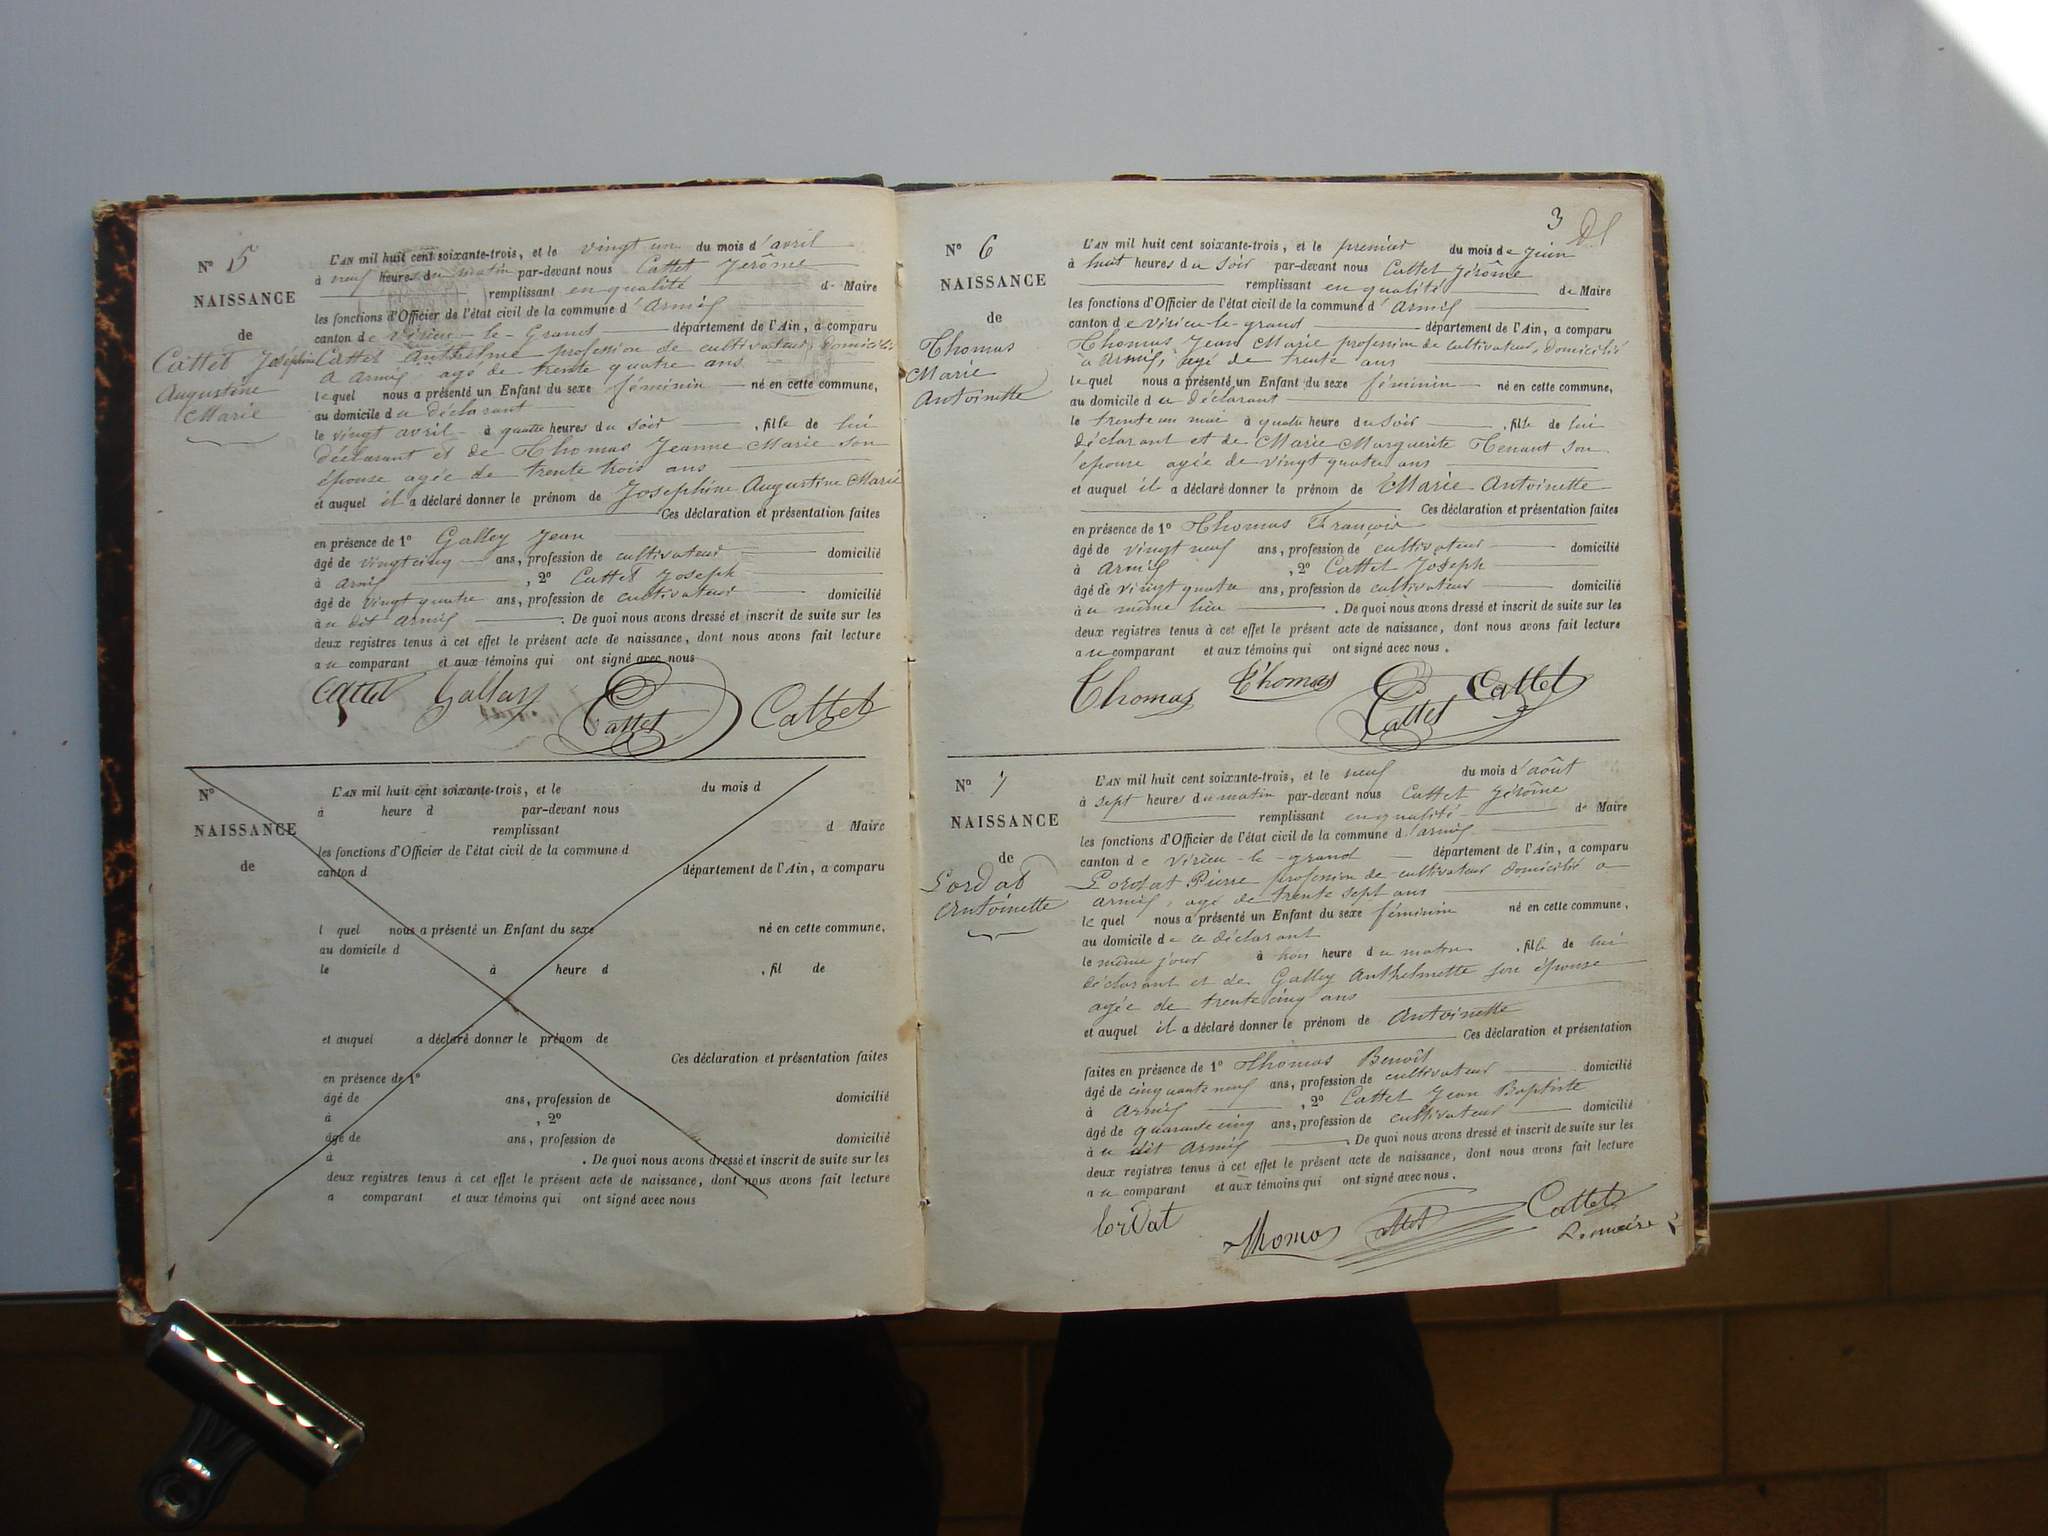 N° 5
NAISSANCE
de
Cattet Joséphine
Augustine
Marie
L'AN mil huit cent soixante-trois, et le vingt un du mois d'avril
à neuf heures du matin par-devant nous Cattet Jérôme
remplissant en qualité de Maire
les fonctions d'Officier de l'état civil de la commune d'Armix
canton de Virieu-le-Grand département de l'Ain, a comparu
Cattet Anthelme profession de cultivateur, domicilié
à Armix agé de trente quatre ans
lequel nous a présenté un Enfant du sexe féminin né en cette commune,
au domicile du déclarant
le vingt avril à quatre heures du soir, fille de lui
déclarant et de Thomas Jeanne Marie son
épouse agée de trente trois ans
et auquel il a déclaré donner le prénom de Josephine Augustine Marie
Ces déclaration et présentation faites
en présence de 1° Galley Jean
âgé de vingt cinq ans, profession de cultivateur domicilié
à Armix, 2° Cattet Joseph
âgé de vingt quatre ans, profession de cultivateur domicilié
à u dit Armix. De quoi nous avons dressé et inscrit de suite sur les
deux registres tenus à cet effet le présent acte de naissance, dont nous avons fait lecture
au comparant et aux témoins qui ont signé avec nous
Cattet Galley Cattet Cattet
N°
NAISSANCE
de
L'AN mil huit cent soixante-trois, et le du mois d
à heure d par-devant nous
remplissant d Maire
les fonctions d'Officier de l'état civil de la commune d
canton d département de l'Ain, a comparu
l quel nous a présenté un Enfant du sexe né en cette commune,
au domicile d
le à heure d , fil de
et auquel a déclaré donner le prénom de
Ces déclaration et présentation faites
en présence de 1°
âgé de ans, profession de domicilié
à , 2°
âgé de ans, profession de domicilié
à . De quoi nous avons dressé et inscrit de suite sur les
deux registres tenus à cet effet le présent acte de naissance, dont nous avons fait lecture
a comparant et aux témoins qui ont signé avec nous
3
N° 6
NAISSANCE
de
Thomas
Marie
Antoinette
L'AN mil huit cent soixante-trois, et le premier du mois de Juin
à huit heures du soir par-devant nous Cattet Jérôme
remplissant en qualité de Maire
les fonctions d'Officier de l'état civil de la commune d'Armix
canton de Virieu-le-grand département de l'Ain, a comparu
Thomas Jean Marie profession de cultivateur, domicilié
à Armix, agé de trente ans
lequel nous a présenté un Enfant du sexe féminin né en cette commune,
au domicile du déclarant
le trente un mai à quatre heure du soir, fille de lui
déclarant et de Marie Marguerite Tenant son
épouse agée de vingt quatre ans
et auquel il a déclaré donner le prénom de Marie Antoinette
Ces déclaration et présentation faites
en présence de 1° Thomas François
âgé de vingt neuf ans, profession de cultivateur domicilié
à Armix, 2° Cattet Joseph
âgé de vingt quatre ans, profession de cultivateur domicilié
à u même lieu. De quoi nous avons dressé et inscrit de suite sur les
deux registres tenus à cet effet le présent acte de naissance, dont nous avons fait lecture
au comparant et aux témoins qui ont signé avec nous.
Thomas Thomas Cattet Cattet
N° 7
NAISSANCE
de
Lordat
Antoinette
L'AN mil huit cent soixante-trois, et le neuf du mois d'août
à sept heures du matin par-devant nous Cattet Jérôme
remplissant en qualité de Maire
les fonctions d'Officier de l'état civil de la commune d'Armix
canton de Virieu-le-grand département de l'Ain, a comparu
Lordat Pierre profession de cultivateur domicilié à
Armix, agé de trente sept ans
lequel nous a présenté un Enfant du sexe féminin né en cette commune,
au domicile de ce déclarant
le même jour à trois heure du matin, fille de lui
déclarant et de Galley Anthelmette son épouse
agée de trente cinq ans
et auquel il a déclaré donner le prénom de Antoinette
Ces déclaration et présentation
faites en présence de 1° Thomas Benoît
âgé de cinquante neuf ans, profession de cultivateur domicilié
à Armix, 2° Cattet Jean Baptiste
âgé de quarante cinq ans, profession de cultivateur domicilié
à u dit Armix. De quoi nous avons dressé et inscrit de suite sur les
deux registres tenus à cet effet le présent acte de naissance, dont nous avons fait lecture
au comparant et aux témoins qui ont signé avec nous.
lordat Thomas Cattet Cattet